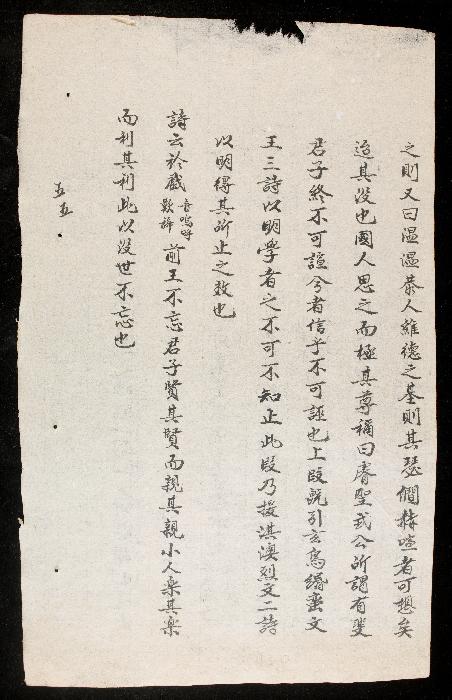 之則又曰温温恭人維德之基則其瑟僩赫喧者可想矣
迨其没也國人思之而極其尊稱曰睿聖武公所謂有斐
君子終不可諠兮者信乎不可誣也上段既引玄鳥緡蠻文
王三詩以明學者之不可不知止此段乃援淇澳烈文二詩
以明得其所止之效也
詩云於戲音嗚呼歎辭前王不忘君子賢其賢而親其親小人樂其樂
而利其利此以没世不忘也
五五